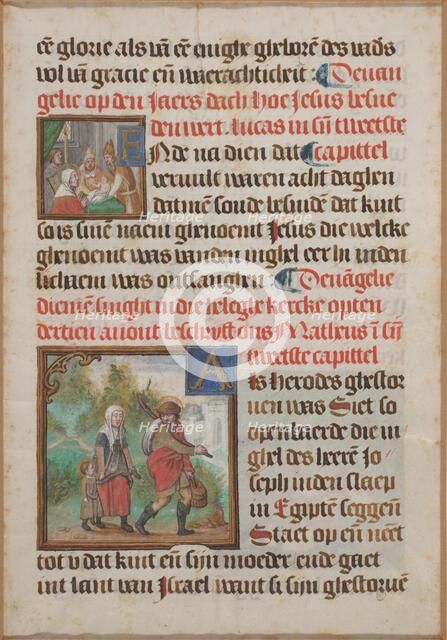 eē glorie als vā eē enighe gheborē des vad's
vol vā gracie eñ waerachticheit : Dewan
gelie op den Jaers dach hoe Jesus besne
den wert. lucas in sin tweetste
Ende na dien dat capittel
vervult waren acht daghen
datmē soude besnidē dat kint
so is sinē naem ghenoemt Jesus die welcke
ghenoemt was vanden inghel eer hi inden
lichaem was ontfanghen Dewāgelie
diemē singht in die helegle kercke opten
dertien avont bescryft ons Matheus ī sin
tweetste capittel
Als herodes ghestor
uen was Siet so
openbaerde die in
ghel des heeren Jo
seph in den slaep
in Egipten seggen
Staet op en neēt
tot v dat kint eñ sijn moeder ende gaet
int lant van Israel want si sijn ghestoruē
Heritage
Heritage
Heritage
Heritage
Heritage
Heritage